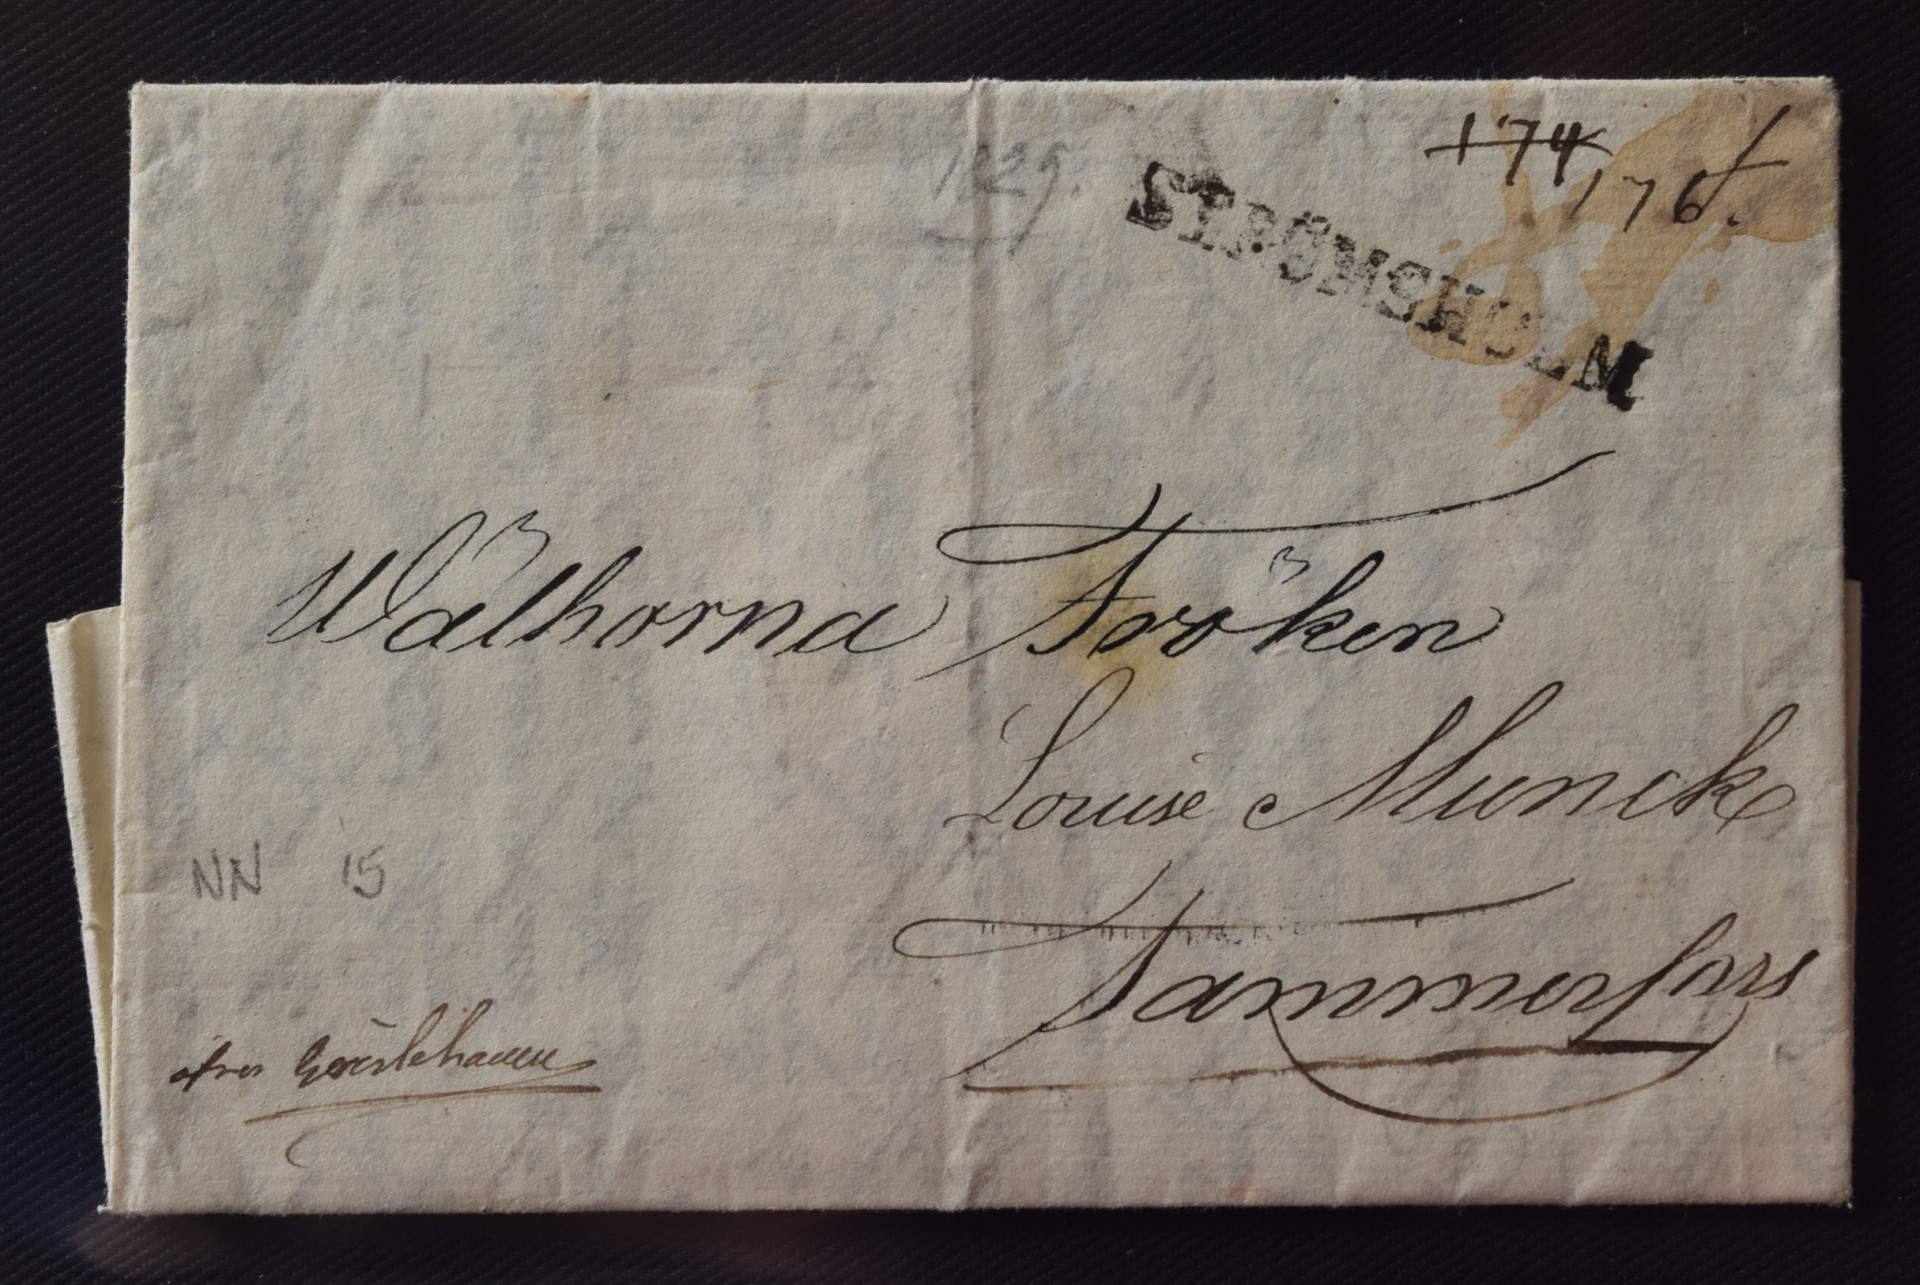 1829.
174
176.
STRÖMSHOLM
Wälborna Fröken
Louise Munck
Tammerfors
NN 15
öfver Grislehamn